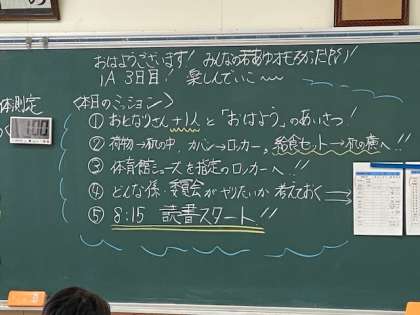 おはようございます! みんなの若あゆオモろかったPS!
1A 3日目! 楽しんでいこ〜〜
体測定
<本日のミッション>
① おとなりさん+1人と「おはよう」のあいさつ!
② 荷物→机の中、カバン→ロッカー。給食セット→机の横へ!!
③ 体育館シューズを指定のロッカーへ!!
④ どんな係・委員会がやりたいか 考えておく
⑤ 8:15 読書スタート!!